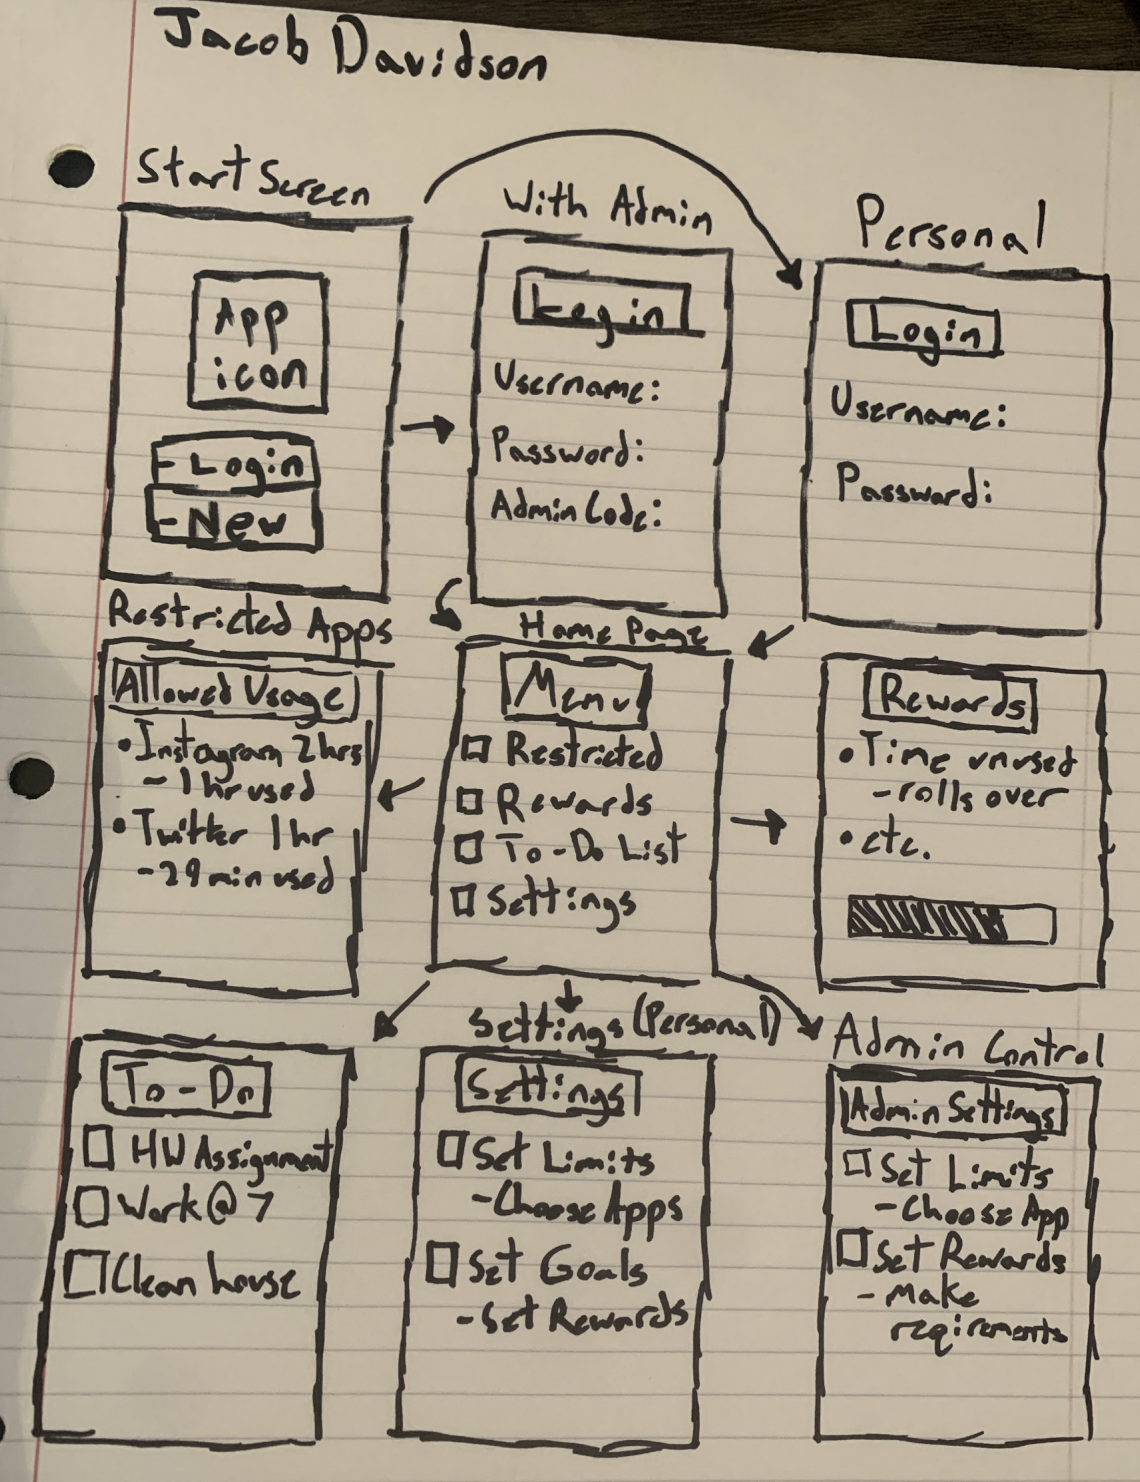 Jacob Davidson
Start Screen
App
icon
- Login
- New
With Admin
Login
Username:
Password:
Admin Code:
Personal
Login
Username:
Password:
Restricted Apps
Allowed Usage
• Instagram 2hrs
- 1 hr used
• Twitter 1hr
- 29 min used
Home Page
Menu
Restricted
Rewards
To-Do List
Settings
Rewards
• Time unused
- rolls over
• etc.
To-Do
HW Assignment
Work @ 7
Clean house
Settings (Personal)
Settings
Set Limits
- Choose Apps
Set Goals
- Set Rewards
Admin Control
Admin Settings
Set Limits
- Choose App
Set Rewards
- Make
requirements